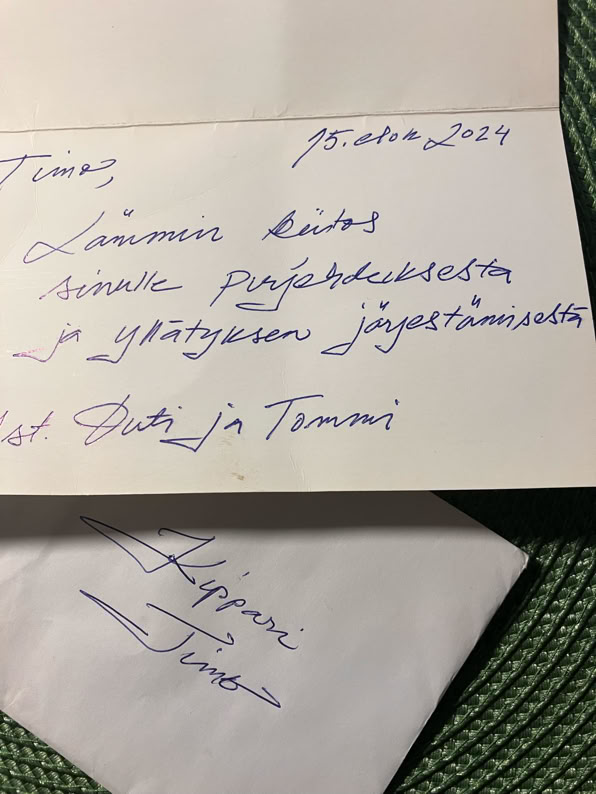 15.elok 2024
Timo,
Lämmin kiitos
sinulle purjehduksesta
ja yllätyksen järjestämisestä
st. Outi ja Tommi
Kippari
Timo